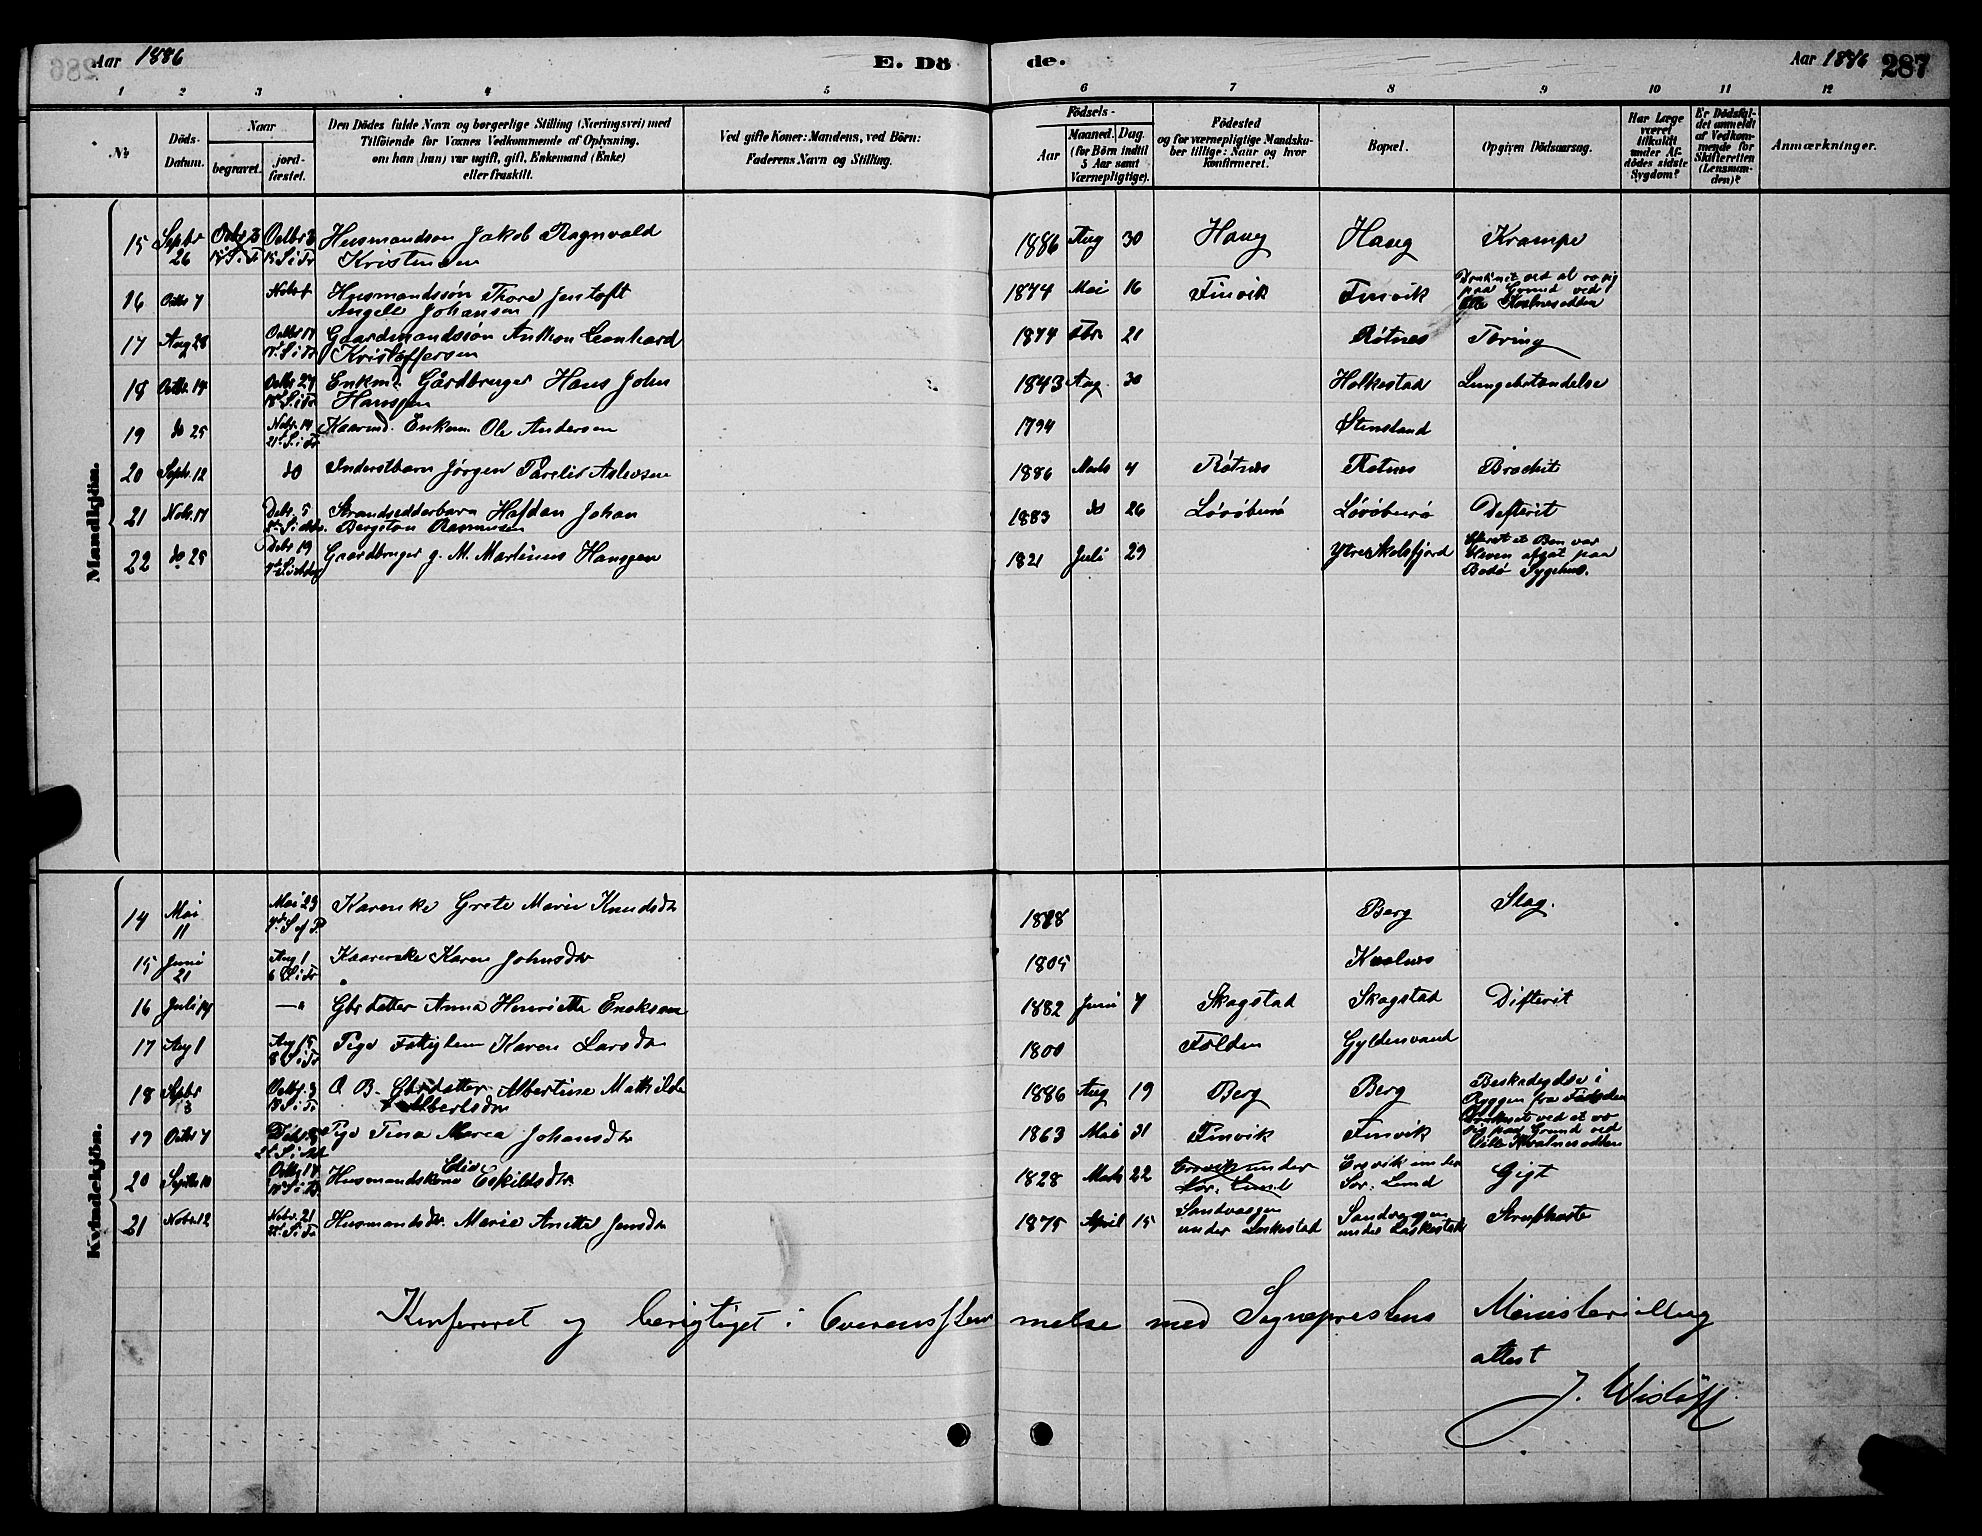 286
Aar 1886
E. Dö
de.
Aar 1886 287
1 2 3 4 5 6 7 8 9 10 11 12
No
Döds-Datum.
Naar
begravet.
jord-fæstet.
Den Dödes fulde Navn og borgerlige Stilling (Næringsvei) med
Tilföiende for Voxnes Vedkommende af Oplysning,
om han (hun) var ugift, gift, Enkemand (Enke)
eller fraskilt.
Ved gifte Koner: Mandens, ved Börn:
Faderens Navn og Stilling.
Födsels-
Aar
Maaned. Dag.
(for Börn indtil
5 Aar samt
Værnepligtige).
Födested
og for værnepligtige Mandska-
ber tillige: Naar og hvor
Konfirmeret.
Bopæl.
Opgiven Dödsaarsag.
Har Læge
været
tilkaldt
under Af-
dödes sidste
Sygdom?
Er Dödsfal-
det anmeldt
af Vedkom-
mende for
Skifteretten
(Lensman-
den)?
Anmærkninger.
Mandkjön.
15 Septbr 26 Octbr 3 Octbr 3 15 S i Tr Husmandssøn Jakob Ragnvald Kristensen 1886 Aug 30 Haug Haug Krampe
16 Octbr 7 Husmandssøn Thore Jentoft Angell Johansen 1874 Mai 16 Finvik Finvik Druknet ved at ro sig paa Grund ved Lille Kvalnesodden
17 Aug 28 Octbr 17 Gaardmandssøn Anthon Leonhard Kristoffersen 1874 Fbr 21 Røtnes Tæring
18 Octbr 14 Octbr 24 18 S i Tr Enkmd. Gårdbruger Hans John Hanssen 1843 Aug 30 Holkestad Lungebetændelse
19 do 25 Nobr 14 21 S i Tr Kaarmd. Enkem. Ole Andersen 1794 Stensland
20 Septr. 12 do Inderstbarn Jørgen Parelius Aslevsen 1886 Marts 4 Røtnes Røtnes Brochit
21 Nobr. 17 Debr. 5 Strandsidderbarn Hafdan Johan Bergston Rasmusen 1883 do 26 Løvøburø Løvøburø Difterit
22 do 25 Debr 19 Graardbruger g. M. Martinus Hanssen 1821 Juli 29 Ytre Skolsfjord Efterat et Ben var bleven afsat paa Bodø Sygehus.
Kvindekjön.
14 Mai 11 Mai 23 Karenke Grete Marie Knudsdtr 1828 Berg Slag.
15 Juni 21 Aug 1 6 S i Tr Kaarenke Karen Johnsdtr 1805 Kvalnes
16 Juli 14 —" Gbr datter Anna Henriette Enoksen 1882 Juni 7 Skagstad Skagstad Difterit
17 Aug 1 Aug 15 8 S i Tr Pige Fattiglem Karen Larsdtr 1800 Folden Gyldenvand
18 Septbr 3 Octbr. 3 15 S i Tr O B. Gbrdatter Albertine Mathilde Albertsdtr 1886 Aug 19 Berg Berg Beskadigelse i Ryggen fra Fødselen
19 Octbr 7 Pige Tina Marea Johansdtr 1863 Mai 31 Finvik Finvik Druknet ved at ro sig paa Grund ved Lille Kvalnesodden
20 Septbr 10 Octbr 17 17 S i Tr Husmandskone Elis Eskildsdtr 1828 Marts 22 Ersvik under Sør. Lund Ersvik under Sør. Lund Gigt
21 Nobr 12 Nobr. 21 22 S i Tr Husmandsdtr. Marie Anette Jensdtr 1875 April 15 Sandvaagen under Laskestad Sandvaagen under Laskestad Strubhoste
Konfereret og berigtiget i Overensstemmelse med Sognepræstens Ministerialbog
attest
J. Wisløff